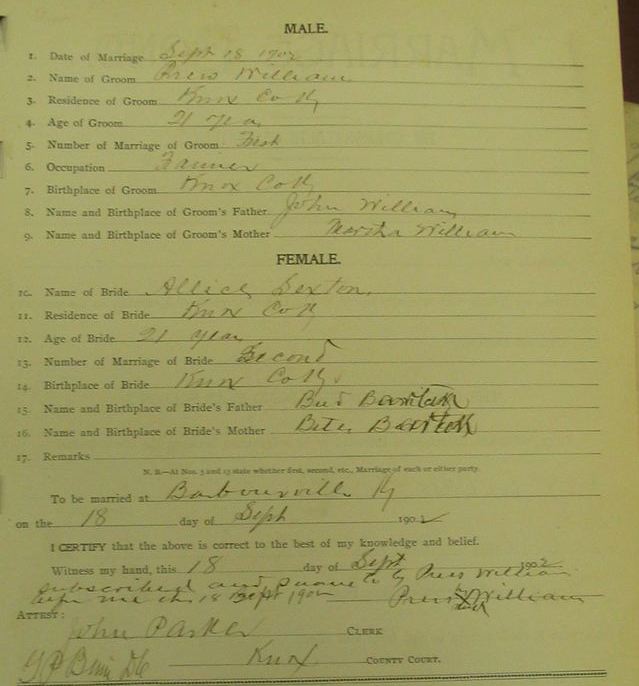 MALE.
1. Date of Marriage Sept 18 1902
2. Name of Groom Press William
3. Residence of Groom Knox Co Ky
4. Age of Groom 21 year
5. Number of Marriage of Groom First
6. Occupation Farmer
7. Birthplace of Groom Knox Co Ky
8. Name and Birthplace of Groom's Father John William
9. Name and Birthplace of Groom's Mother Martha William
FEMALE.
10. Name of Bride Allice Sexton
11. Residence of Bride Knox Co Ky
12. Age of Bride 21 year
13. Number of Marriage of Bride Second
14. Birthplace of Bride Knox Co Ky.
15. Name and Birthplace of Bride's Father Bud
16. Name and Birthplace of Bride's Mother
17. Remarks
N. B.—At Nos. 5 and 13 state whether first, second, etc., Marriage of each or either party.
To be married at Barbourville Ky
on the 18 day of Sept 1902
I CERTIFY that the above is correct to the best of my knowledge and belief.
Witness my hand, this 18 day of Sept 1902
subscribed and by Press William
me 18 Sept 1902 Press X William
ATTEST:
John Parker CLERK
DC Knox COUNTY COURT.